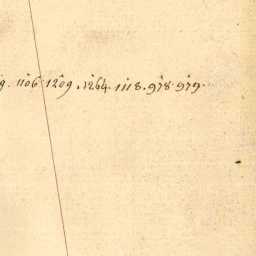 9. 1106 1209. 1264. 1118. 978. 979.